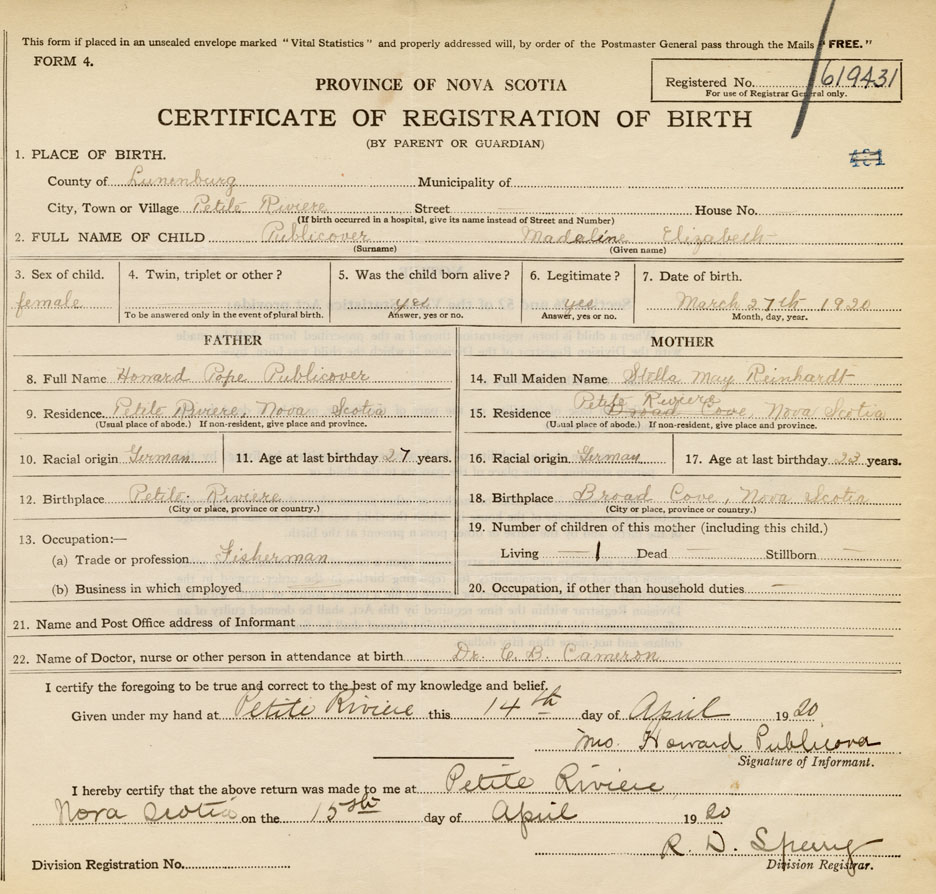 This form if placed in an unsealed envelope marked "Vital Statistics" and properly addressed will, by order of the Postmaster General pass through the Mails "FREE."
FORM 4.
Registered No. 619431
For use of Registrar General only.
PROVINCE OF NOVA SCOTIA
CERTIFICATE OF REGISTRATION OF BIRTH
(BY PARENT OR GUARDIAN)
1. PLACE OF BIRTH.
County of Lunenburg Municipality of
City, Town or Village Petite Riviere Street House No.
(If birth occurred in a hospital, give its name instead of Street and Number)
2. FULL NAME OF CHILD Publicover Madeline Elizabeth
(Surname) (Given name)
3. Sex of child. 4. Twin, triplet or other? 5. Was the child born alive? 6. Legitimate? 7. Date of birth.
female yes yes March 27th 1920
To be answered only in the event of plural birth. Answer, yes or no. Answer, yes or no. Month, day, year.
FATHER MOTHER
8. Full Name Howard Pope Publicover 14. Full Maiden Name Stella May Reinhardt
Petite Riviere
9. Residence. Petite Riviere, Nova Scotia 15. Residence Broad Cove, Nova Scotia
(Usual place of abode.) If non-resident, give place and province. (Usual place of abode.) If non-resident, give place and province.
10. Racial origin German 11. Age at last birthday 27 years. 16. Racial origin German 17. Age at last birthday 23 years.
12. Birthplace Petite Riviere 18. Birthplace Broad Cove, Nova Scotia
(City or place, province or country.) (City or place, province or country.)
13. Occupation:— 19. Number of children of this mother (including this child.)
(a) Trade or profession Fisherman Living 1 Dead Stillborn
(b) Business in which employed 20. Occupation, if other than household duties
21. Name and Post Office address of Informant
22. Name of Doctor, nurse or other person in attendance at birth Dr. C. B. Cameron
I certify the foregoing to be true and correct to the best of my knowledge and belief.
Given under my hand at Petite Riviere this 14th day of April 1920
Mrs. Howard Publicover
Signature of Informant.
I hereby certify that the above return was made to me at Petite Riviere
Nova Scotia on the 15th day of April 1920
R. D. Sperry
Division Registration No. Division Registrar.